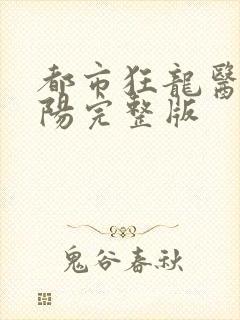 都市狂龍醫
陽完整版
鬼谷春秋